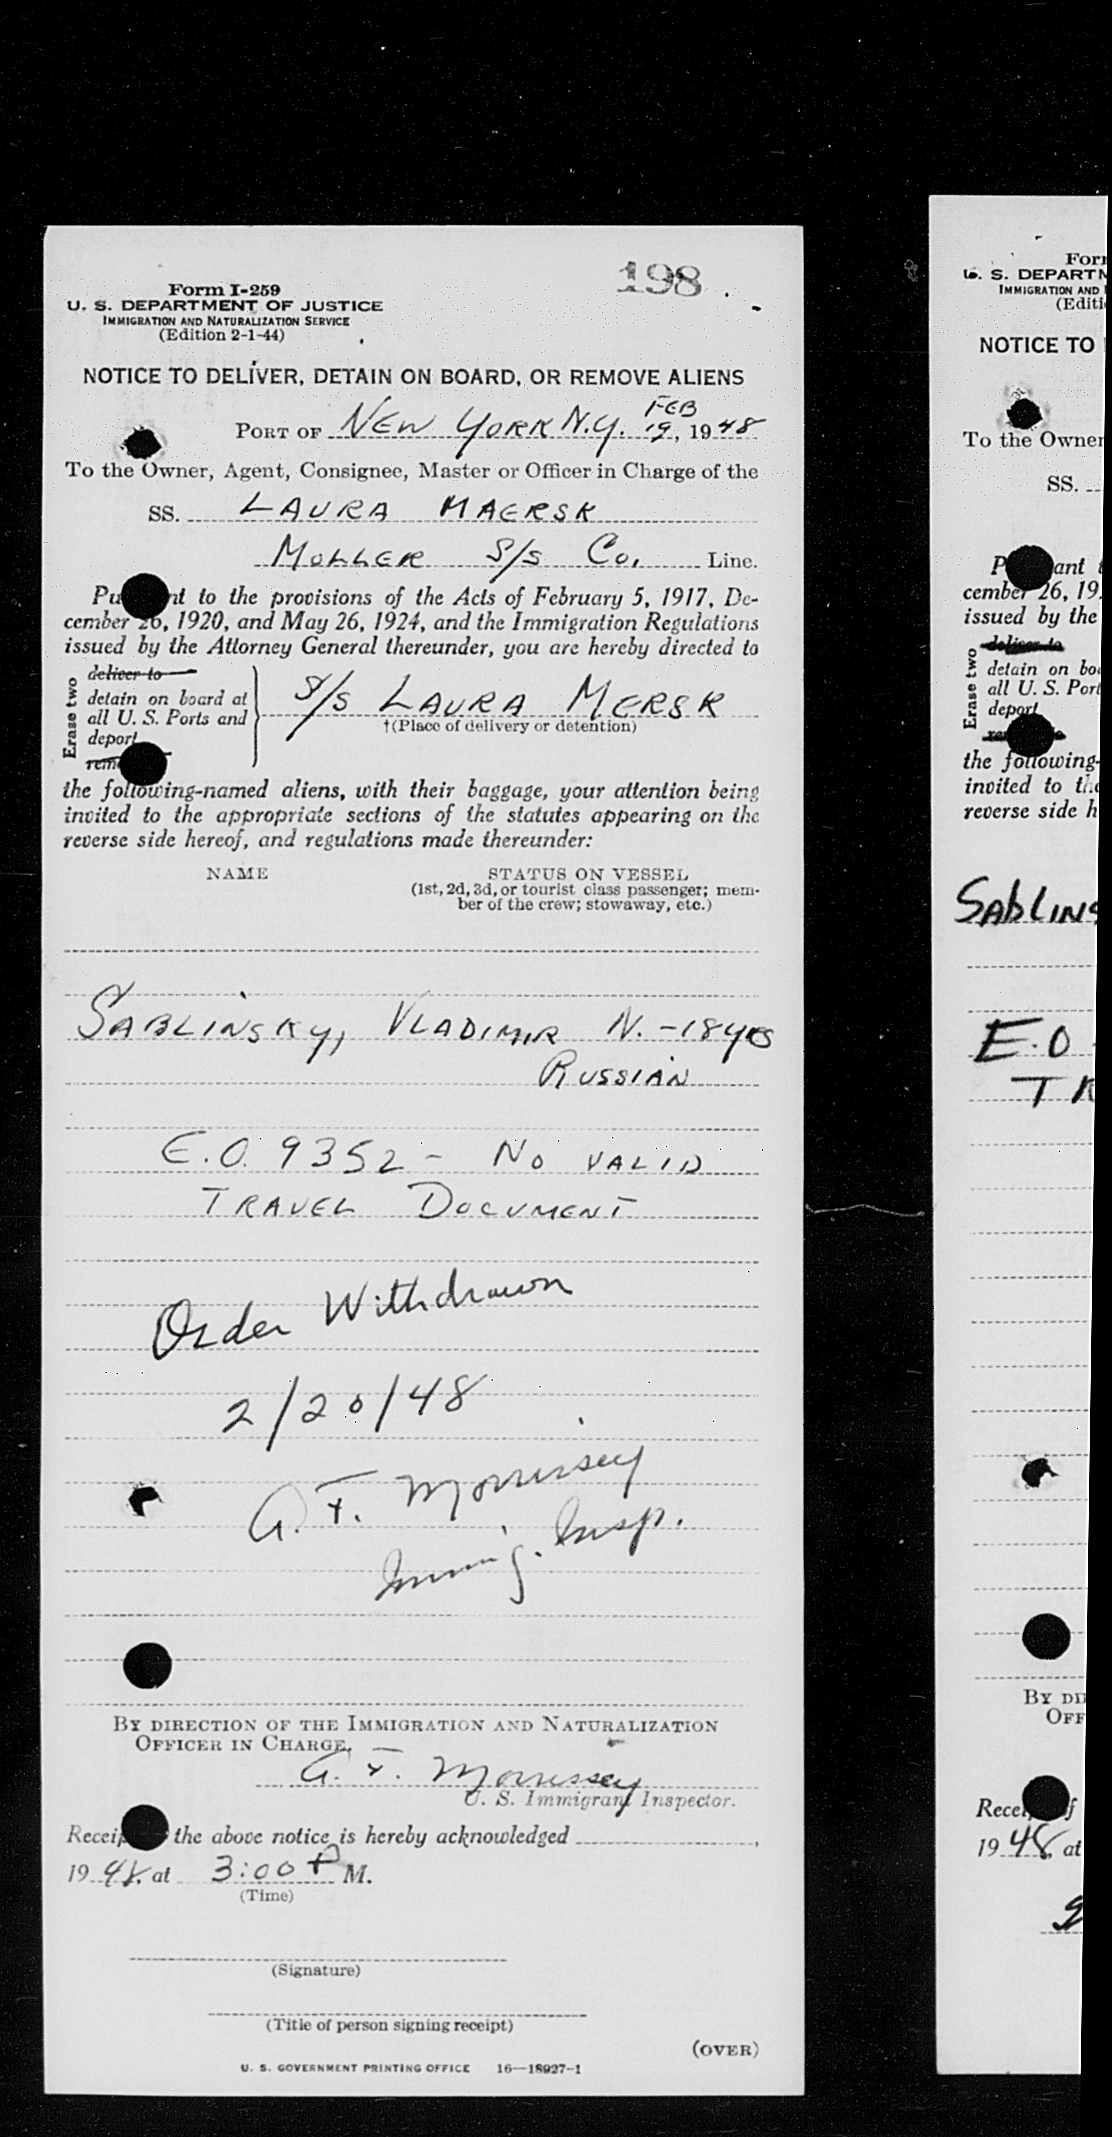 198
Form I-259
U. S. DEPARTMENT OF JUSTICE
IMMIGRATION AND NATURALIZATION SERVICE
(Edition 2-1-44)
NOTICE TO DELIVER, DETAIN ON BOARD, OR REMOVE ALIENS
PORT OF NEW YORK N.Y. FEB 19, 1948
To the Owner, Agent, Consignee, Master or Officer in Charge of the
SS. LAURA MAERSK
MOLLER S/S Co. Line.
Pu nt to the provisions of the Acts of February 5, 1917, De-
cember 26, 1920, and May 26, 1924, and the Immigration Regulations
issued by the Attorney General thereunder, you are hereby directed to
Erase two
deliver to
detain on board at
all U. S. Ports and
deport
rem
S/S LAURA MERSK
†(Place of delivery or detention)
the following-named aliens, with their baggage, your attention being
invited to the appropriate sections of the statutes appearing on the
reverse side hereof, and regulations made thereunder:
NAME STATUS ON VESSEL
(1st, 2d, 3d, or tourist class passenger; mem-
ber of the crew; stowaway, etc.)
SABLINSKY, VLADIMIR N. - 18 yrs
RUSSIAN
E.O. 9352 - NO VALID
TRAVEL DOCUMENT
Order Withdrawn
2/20/48
A. F. Morrissey
Immig. Insp.
BY DIRECTION OF THE IMMIGRATION AND NATURALIZATION
OFFICER IN CHARGE,
A. F. Morrissey
U. S. Immigrant Inspector.
Receip the above notice is hereby acknowledged ,
1948, at 3:00 P M.
(Time)
(Signature)
(Title of person signing receipt)
(OVER)
U. S. GOVERNMENT PRINTING OFFICE 16—18927-1
Form
U. S. DEPARTM
IMMIGRATION AND
(Editi
NOTICE TO
To the Owner
SS.
P ant
cember 26, 19
issued by the
Erase two
deliver to
detain on boa
all U. S. Port
deport
the following-
invited to the
reverse side h
SABLINS
E.O
TR
BY DI
OFF
Recei f
1948, at